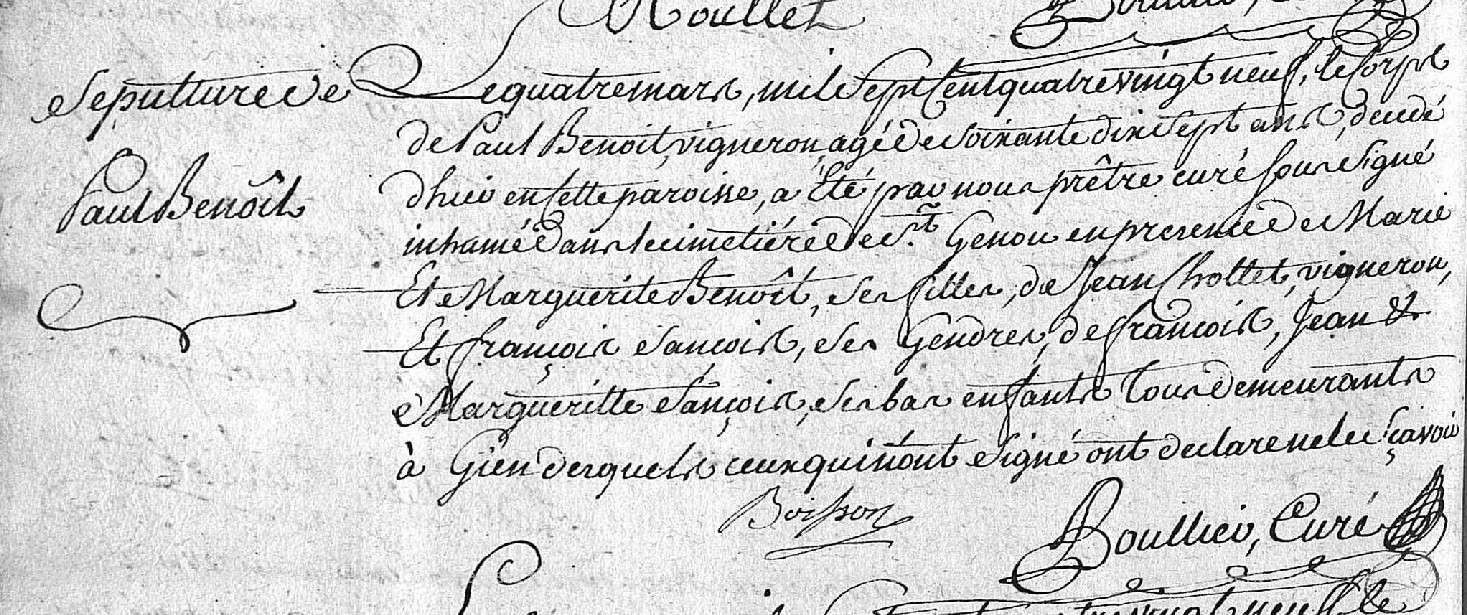 Roullet
Sepulture de
Paul Benoît
Le quatre mars, mil sept Cent quatre vingt neuf, le Corps
de Paul Benoit, vigneron, agé de soixante dix sept ans, decedé
d'hier en Cette paroisse, a été par nous prêtre curé soussigné
inhumé dans le cimetiére de St. Genou en presence de Marie
Et Marguerite Benoît, ses filles, de Jean Chollet, vigneron,
Et françois Sançois, ses Gendres, de françois, Jean &
Margueritte Sançois, ses bas enfants tous demeurants
à Gien desquels ceux qui n'ont signé ont declare ne le sçavoir
Boisson
Boullier, Curé